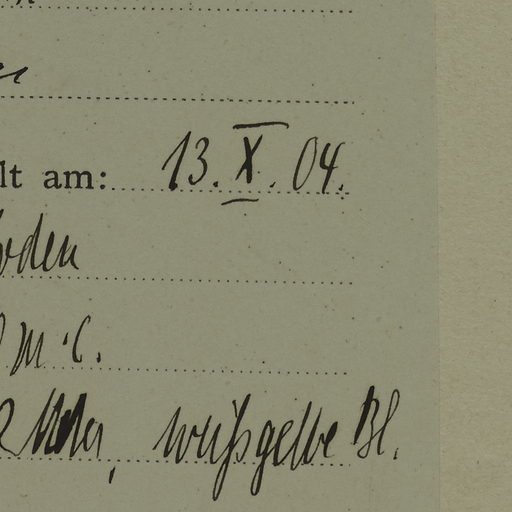 lt am: 13. X. 04.
oden
m. c.
weißgelbe Bl.